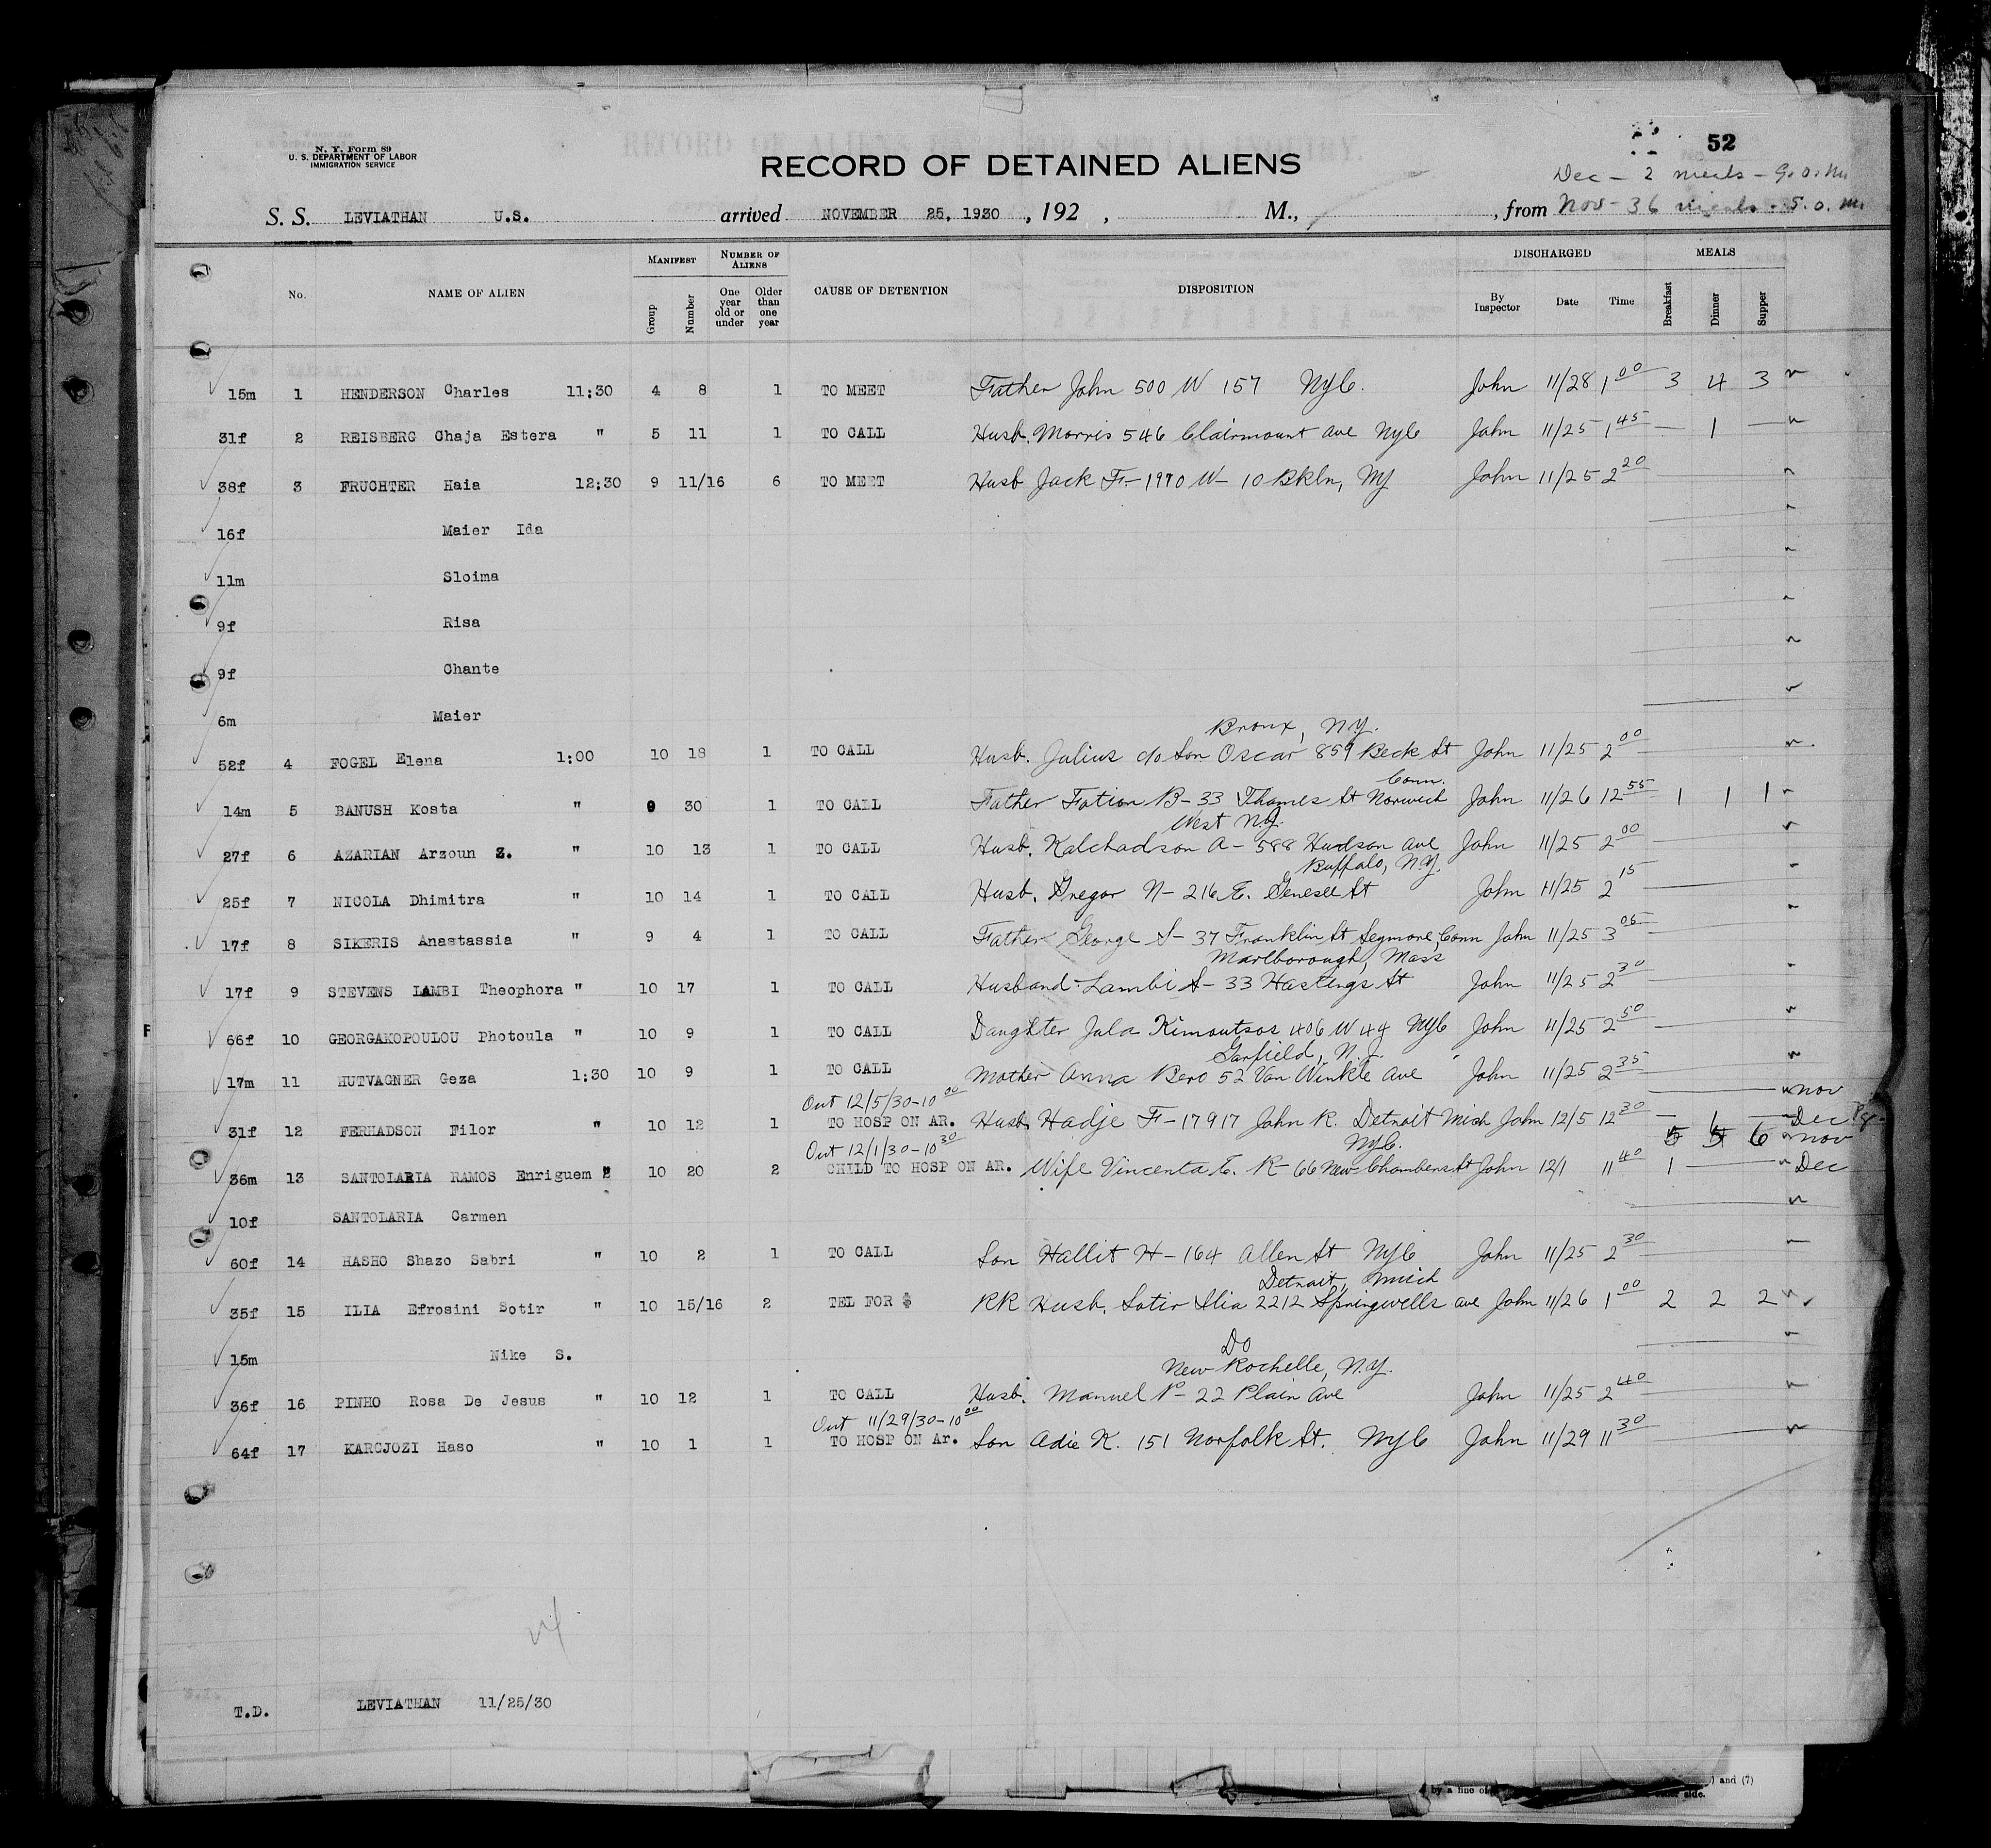 N. Y. Form 89
U. S. DEPARTMENT OF LABOR
IMMIGRATION SERVICE
52
RECORD OF DETAINED ALIENS
Dec - 2 meals - G.O.M.
S. S. LEVIATHAN U.S. arrived NOVEMBER 25, 1930, 192 , M., , from Nov - 36 meals - S.O.M.
No. NAME OF ALIEN MANIFEST Group Number NUMBER OF ALIENS One year old or under Older than one year CAUSE OF DETENTION DISPOSITION DISCHARGED By Inspector Date Time MEALS Breakfast Dinner Supper
15m 1 HENDERSON Charles 11:30 4 8 1 TO MEET Father John 500 W 157 NYC. John 11/28 1 00 3 4 3
31f 2 REISBERG Chaja Estera " 5 11 1 TO CALL Husb. Morris 546 Clairmount Ave NYC John 11/25 1 45 — 1 —
38f 3 FRUCHTER Haia 12:30 9 11/16 6 TO MEET Husb Jack F- 1970 W- 10 Bkln, NY John 11/25 2 20
16f Maier Ida
11m Sloima
9f Risa
9f Chante
6m Maier
Bronx, N.Y.
52f 4 FOGEL Elena 1:00 10 18 1 TO CALL Husb. Julius c/o Son Oscar 859 Beck St John 11/25 2 00
Conn.
14m 5 BANUSH Kosta " 9 30 1 TO CALL Father Fation B- 33 Thames St Norwich John 11/26 12 55 1 1 1
West NY.
27f 6 AZARIAN Arzoun Z. " 10 13 1 TO CALL Husb. Kalchadson A- 588 Hudson Ave John 11/25 2 00
Buffalo, N.Y.
25f 7 NICOLA Dhimitra " 10 14 1 TO CALL Husb. Gregor N- 216 E. Genesee St John 11/25 2 15
17f 8 SIKERIS Anastassia " 9 4 1 TO CALL Father George S- 37 Franklin St Seymore, Conn John 11/25 3 05
Marlborough, Mass
17f 9 STEVENS LAMBI Theophora " 10 17 1 TO CALL Husband- Lambi S- 33 Hastings St John 11/25 2 30
F
66f 10 GEORGAKOPOULOU Photoula " 10 9 1 TO CALL Daughter Jula Kimoutsos 406 W 44 NYC John 11/25 2 50
Garfield, N.J.
17m 11 HUTVAGNER Geza 1:30 10 9 1 TO CALL Mother Anna Bero 52 Van Winkle Ave John 11/25 2 35
Nov
Out 12/5/30-10 00
31f 12 FERHADSON Filor " 10 12 1 TO HOSP ON AR. Husb. Hadje F- 17917 John R. Detroit Mich John 12/5 12 30 — 1 — Dec
Out 12/1/30-10 30 NYC. 5 5 6 Nov
36m 13 SANTOLARIA RAMOS Enriguem " 10 20 2 CHILD TO HOSP ON AR. Wife Vincenta E. R- 66 New Chambers St John 12/1 11 40 1 — Dec
10f SANTOLARIA Carmen
60f 14 HASHO Shazo Sabri " 10 2 1 TO CALL Son Hallit H- 164 Allen St NYC John 11/25 2 30
Detroit, Mich
35f 15 ILIA Efrosini Sotir " 10 15/16 2 TEL FOR $ RR Husb. Sotir Ilia 2212 Springwells Ave John 11/26 1 00 2 2 2
15m Nike S. Do
New Rochelle, N.Y.
36f 16 PINHO Rosa De Jesus " 10 12 1 TO CALL Husb. Manuel P- 22 Plain Ave John 11/25 2 40
Out 11/29/30-10 00
64f 17 KARCJOZI Haso " 10 1 1 TO HOSP ON Ar. Son Adie K. 151 Norfolk St. NYC John 11/29 11 30
T.D. LEVIATHAN 11/25/30
) and (7)
by a line of
other side.